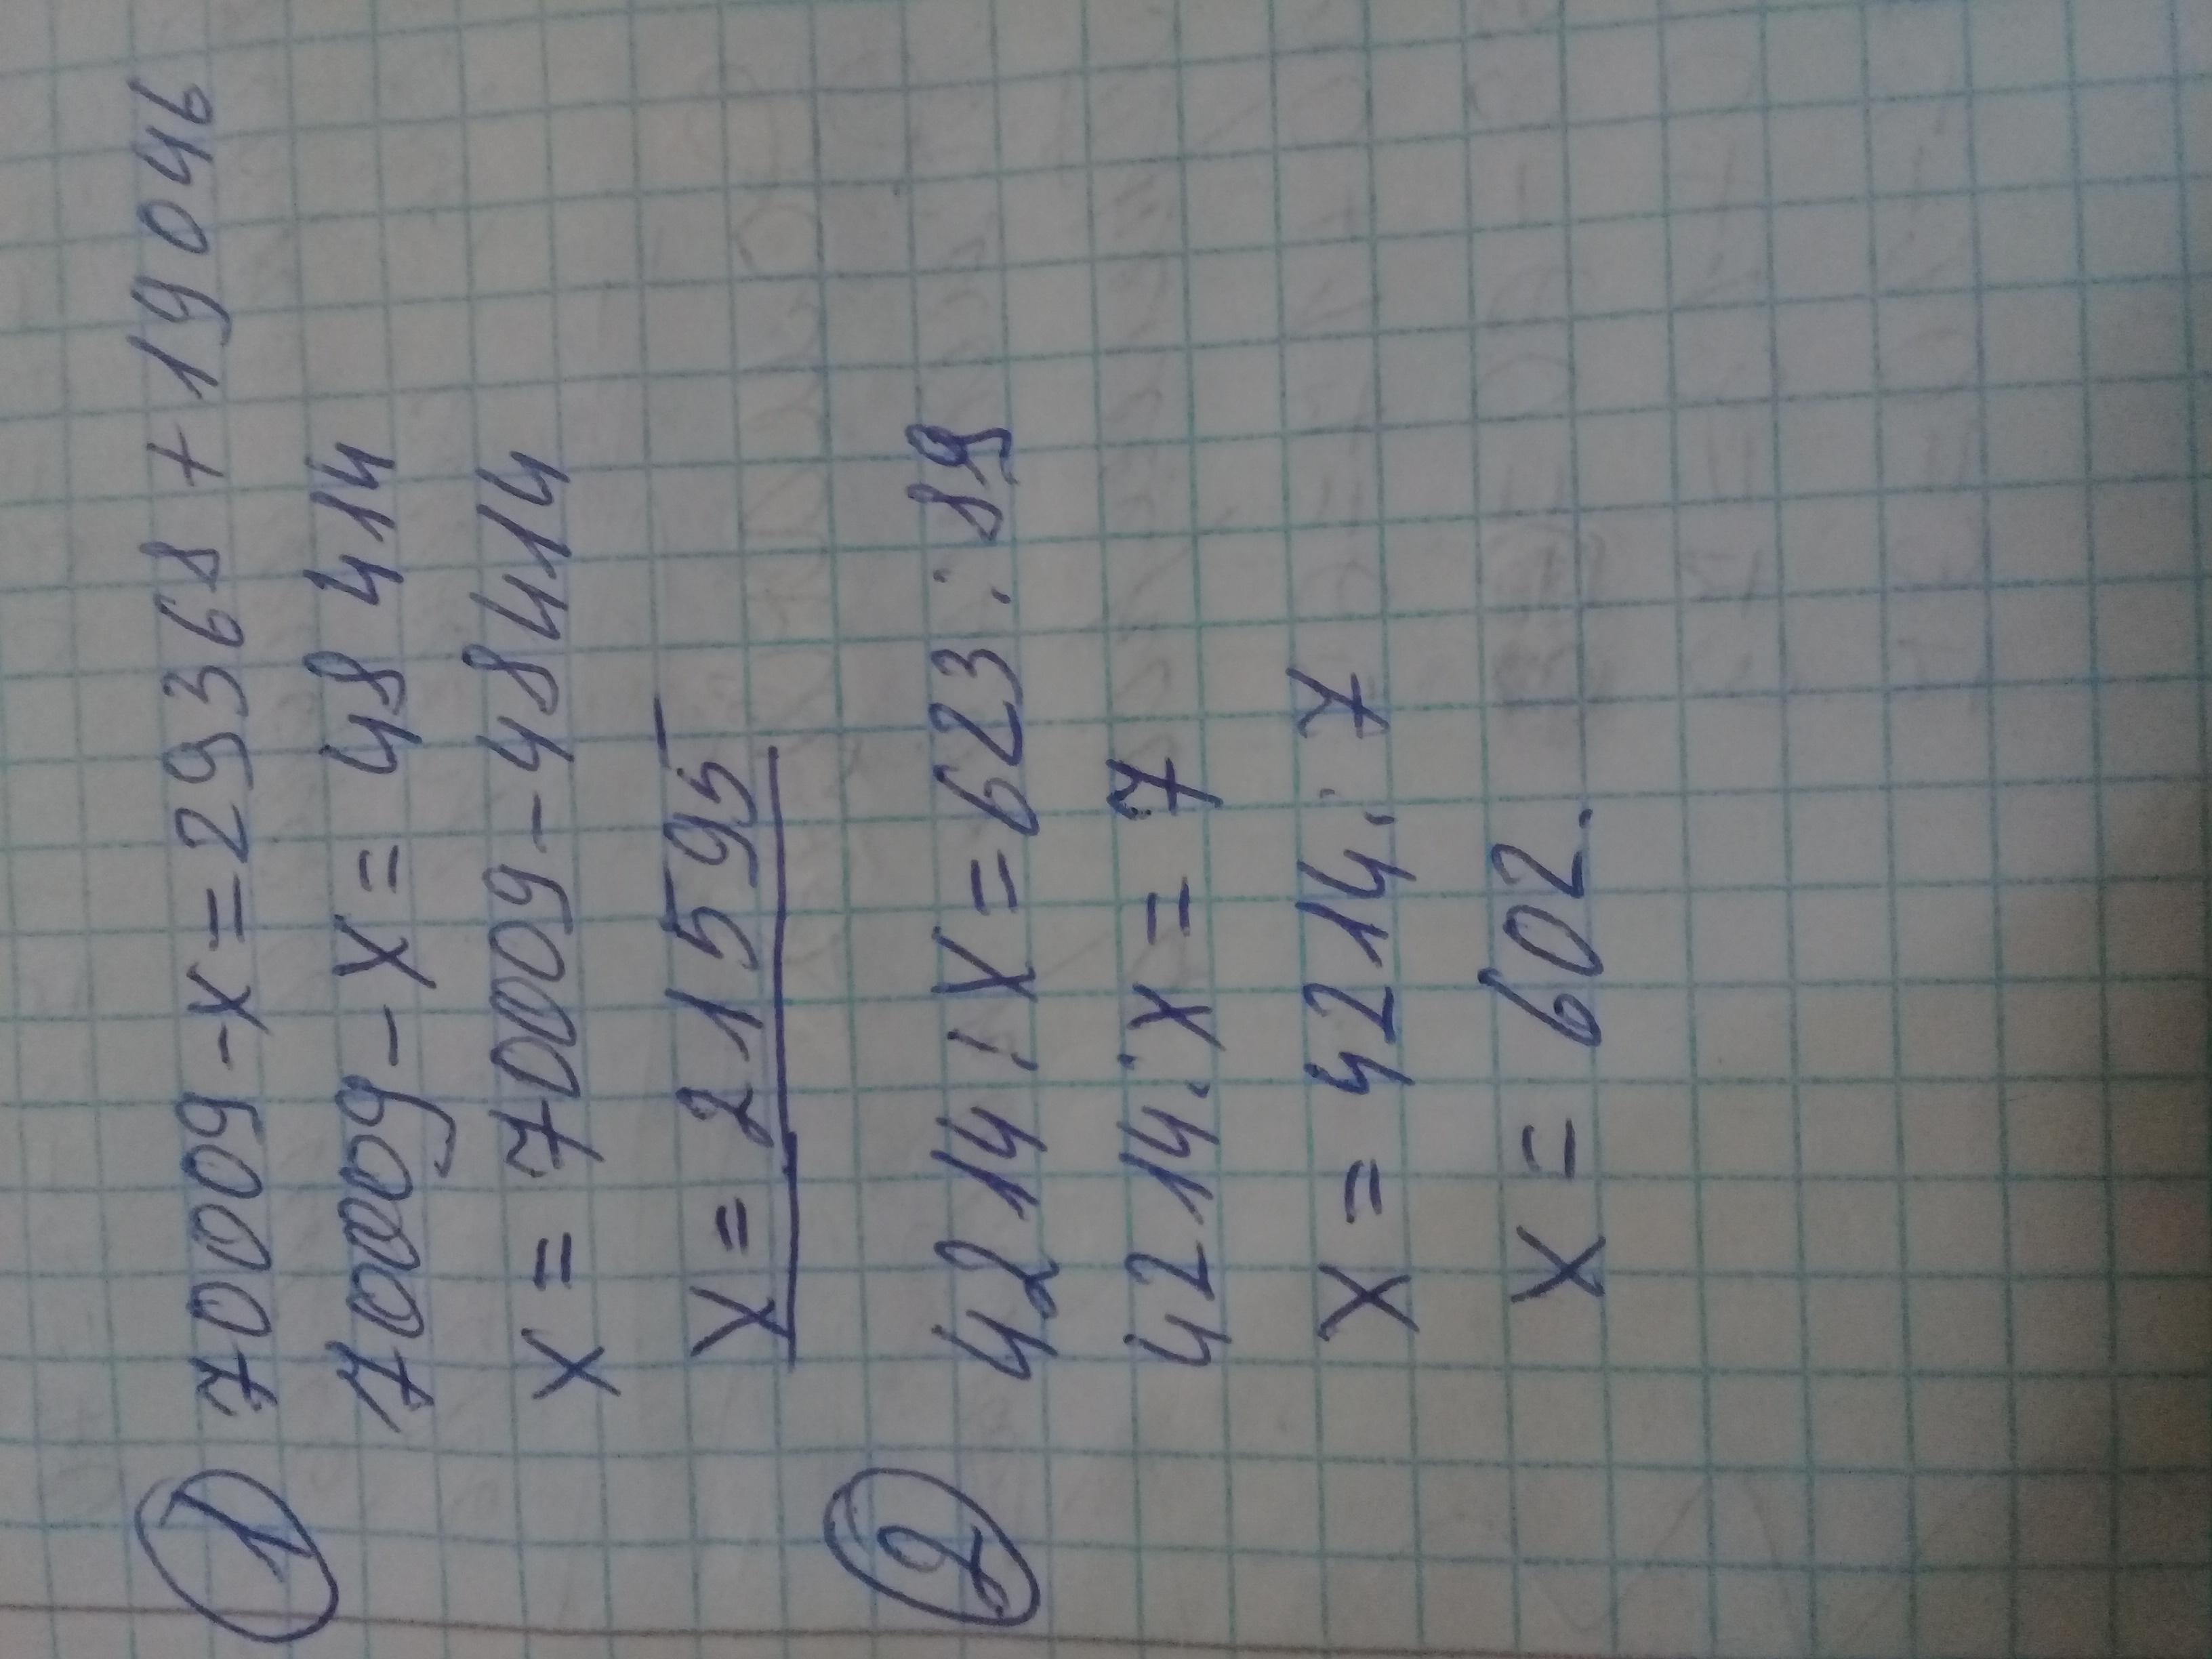 1
70009 - x = 29368 + 19046
70009 - x = 48 414
x = 70009 - 48414
x = 21595
2
4214 : x = 623 : 89
4214 : x = 7
x = 4214 : 7
x = 602.